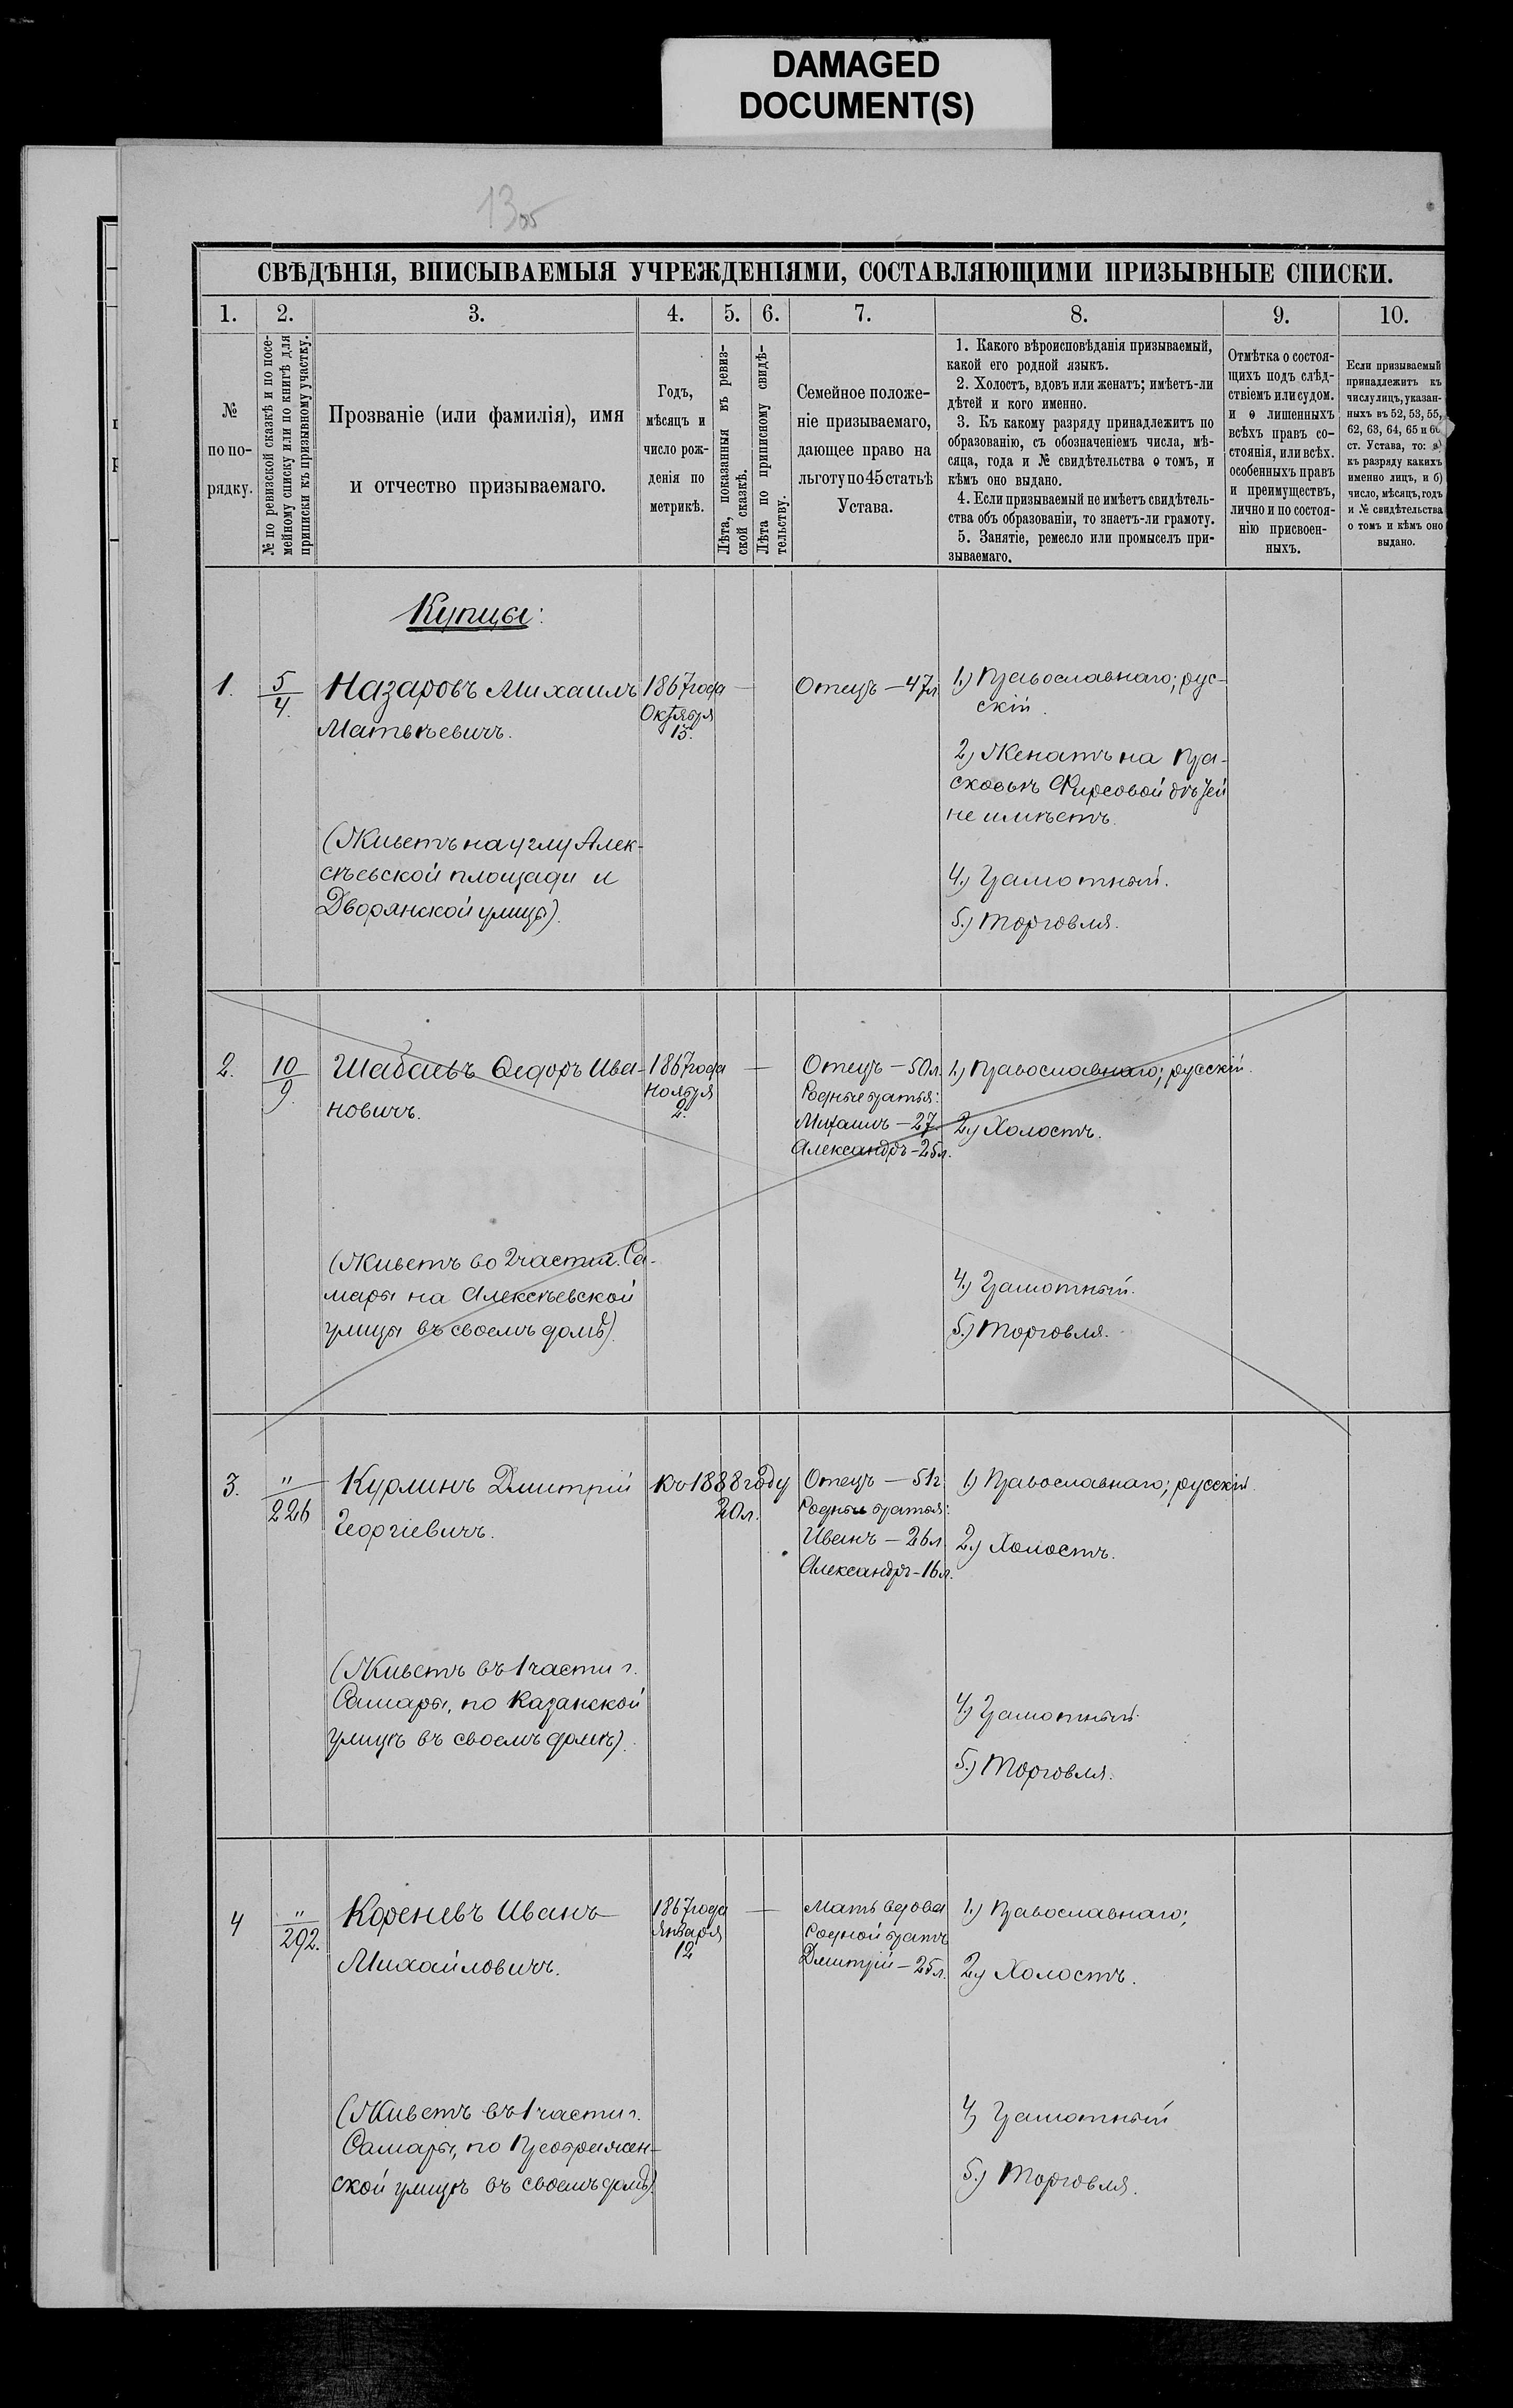 DAMAGED
DOCUMENT(S)
СВѢДѢНІЯ, ВПИСЫВАЕМЫЯ УЧРЕЖДЕНІЯМИ, СОСТАВЛЯЮЩИМИ ПРИЗЫВНЫЕ СПИСКИ.
1. 2. 3. 4. 5. 6. 7. 8. 9. 10.
№
по по-
рядку.
№ по ревизской сказкѣ и по посе-
мейному списку или по книгѣ для
приписки къ призывному участку.
Прозваніе (или фамилія), имя
и отчество призываемаго.
Годъ,
мѣсяцъ и
число рож-
денія по
метрикѣ.
Лѣта, показанныя въ ревиз-
ской сказкѣ.
Лѣта по приписному свидѣ-
тельству.
Семейное положе-
ніе призываемаго,
дающее право на
льготу по 45 статьѣ
Устава.
1. Какого вѣроисповѣданія призываемый,
какой его родной языкъ.
2. Холостъ, вдовъ или женатъ; имѣетъ-ли
дѣтей и кого именно.
3. Къ какому разряду принадлежитъ по
образованію, съ обозначеніемъ числа, мѣ-
сяца, года и № свидѣтельства о томъ, и
кѣмъ оно выдано.
4. Если призываемый не имѣетъ свидѣтель-
ства объ образованіи, то знаетъ-ли грамоту.
5. Занятіе, ремесло или промыселъ при-
зываемаго.
Отмѣтка о состоя-
щихъ подъ слѣд-
ствіемъ или судом.
и о лишенныхъ
всѣхъ правъ со-
стоянія, или всѣх.
особенныхъ правъ
и преимуществъ,
лично и по состоя-
нію присвоен-
ныхъ.
Если призываемый
принадлежитъ къ
числу лицъ, указан-
ныхъ въ 52, 53, 55,
62, 63, 64, 65 и 66
ст. Устава, то: а)
къ разряду какихъ
именно лицъ, и б)
число, мѣсяцъ, годъ
и № свидѣтельства
о томъ и кѣмъ оно
выдано.
Купцы:
1.
5
4.
Назаровъ Михаилъ
Матвѣевичъ.
(Живетъ на углу Алек-
сѣевской площади и
Дворянской улицы).
1867 года
Октября
15.
—
Отецъ — 47 л
1.) Православнаго; рус-
скій.
2) Женатъ на Пра-
сковьѣ Фирсовой дѣтей
не имѣетъ.
4.) Грамотный.
5.) Торговля.
2.
10
9.
Шабаевъ Ѳедоръ Ива-
новичъ.
(Живетъ во 2 части г. Са-
мары на Алексѣевской
улицы въ своемъ домѣ).
1867 года
Ноября
2.
—
Отецъ — 50 л.
Родные братья:
Михаилъ — 27
Александръ — 25 л.
1.) Православнаго; русскій.
2) Холостъ.
4.) Грамотный.
5.) Торговля.
3.
"
226
Курлинъ Дмитрій
Георгіевичъ.
(Живетъ въ 1 части г.
Самары, по Казанской
улицѣ въ своемъ домѣ).
Къ 1888 году
20 л.
Отецъ — 51 г
Родные братья:
Иванъ — 26 л
Александръ — 16 л.
1.) Православнаго; русскій.
2.) Холостъ.
4.) Грамотный.
5.) Торговля.
4
"
292.
Кореневъ Иванъ
Михайловичъ.
(Живетъ въ 1 части г.
Самары, по Преображен-
ской улицѣ въ своемъ домѣ).
1867 года
Января
12
—
Мать вдова
Родной братъ
Дмитрій — 25 л.
1.) Православнаго;
2) Холостъ.
4) Грамотный
5.) Торговля.